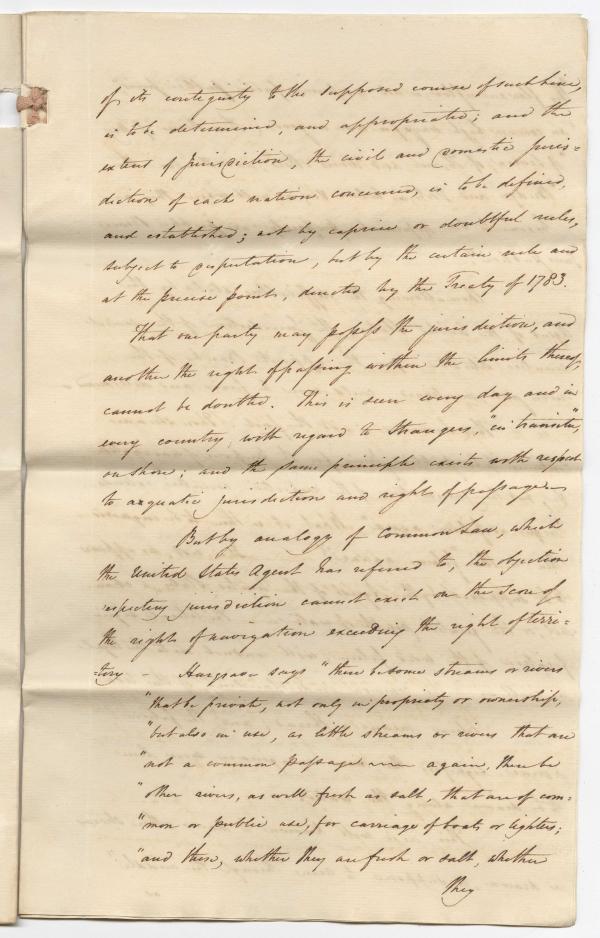 of its contiguity to the supposed course of such line,
is to be determined, and appropriated; and the
extent of jurisdiction, the civil and domestic juris=
diction of each nation concerned, is to be defined,
and established; not by caprice or doubtful rules,
subject to disputation, but by the certain rule and
at the precise points, directed by the Treaty of 1783.
That one party may possess the jurisdiction, and
another the right of passing within the limits thereof,
cannot be doubted. This is seen every day and in
every country, with regard to Strangers, "in transitu",
on shore; and the same principle exists with respect
to aquatic jurisdiction and right of passage.
But by analogy of Common Law, which
the United States Agent has referred to, the objection
respecting jurisdiction cannot exist on the score of
the right of navigation exceeding the right of terri=
=tory - Hargrave says "there be some streams or rivers
"that be private, not only in propriety or ownership,
"but also in use, as little streams or rivers that are
"not a common passage — again, there be
"other rivers, as well fresh as salt, that are of com=
"mon or public use, for carriage of boats or lighters;
"and these, whether they are fresh or salt, whether
they